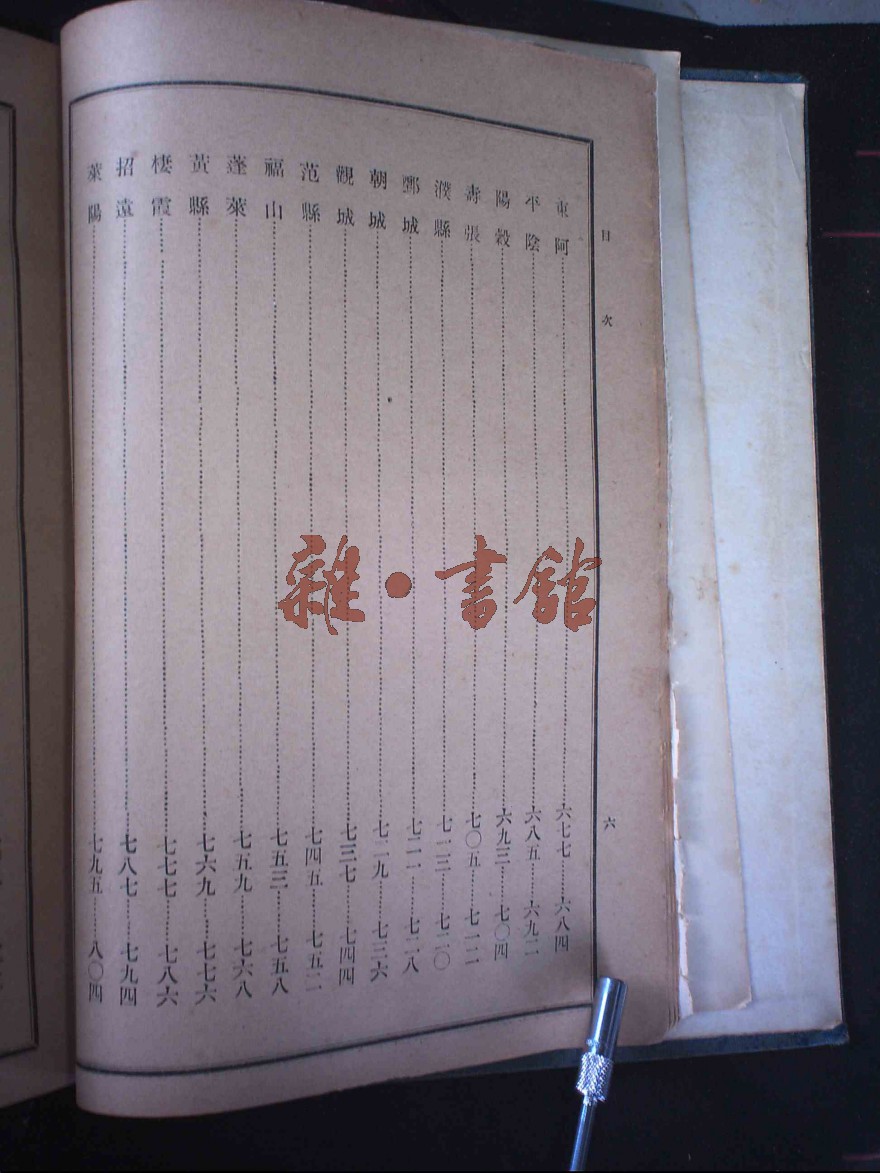 目次 六
東阿……六七七……六八四
平陰……六八五……六九二
陽穀……六九三……七〇四
壽張……七〇五……七一二
濮縣……七一三……七二〇
鄄城……七二一……七二八
朝城……七二九……七三六
觀城……七三七……七四四
范縣……七四五……七五二
福山……七五三……七五八
蓬萊……七五九……七六八
黃縣……七六九……七七六
棲霞……七七七……七八六
招遠……七八七……七九四
萊陽……七九五……八〇四
雜·書館